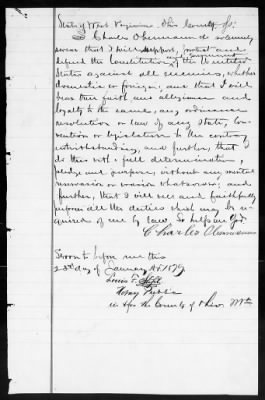 State of West Virginia, Ohio County, ss:
I Charles do solemnly
swear that I will support, protect and
defend the Constitution of the United
States against all enemies, whether
domestic or foreign, and that I will
bear true faith and allegiance and
loyalty to the same, any ordinance
resolution or law of any State, Con-
vention or legislation to the contrary
notwithstanding, and further, that I
do this with a full determination,
pledge and purpose, without any mental
reservation or evasion whatsoever; and
further, that I will well and faithfully
perform all the duties that may be re-
quired of me by law, So help me God
Charles
Sworn to before me this
23d day of January AD. 1879
Louis F.
Notary Public
in & for the County of Ohio